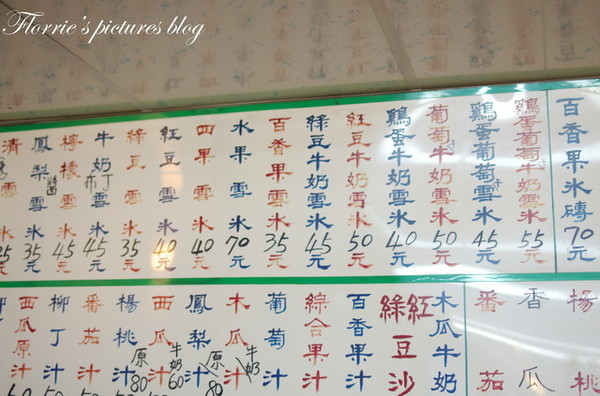 Florrie's pictures blog
百香果冰磚70元
鷄蛋葡萄牛奶雪冰55元
鷄蛋葡萄雪冰45元
葡萄牛奶雪冰50元
鷄蛋牛奶雪冰40元
紅豆牛奶雪冰50元
綠豆牛奶雪冰45元
百香果雪冰35元
水果雪冰70元
四果雪冰40元
紅豆雪冰40元
綠豆雪冰35元
牛奶雪冰45元
布丁
檸檬雪冰45元
鳳梨雪冰35元
清雪冰
元
楊桃
香瓜
番茄
木瓜牛奶
紅綠豆沙
百香果汁
綜合果汁
葡萄汁
木瓜汁
牛奶
鳳梨汁
原80
西瓜汁
牛奶60
楊桃汁
原80
番茄汁
柳丁汁
西瓜原汁